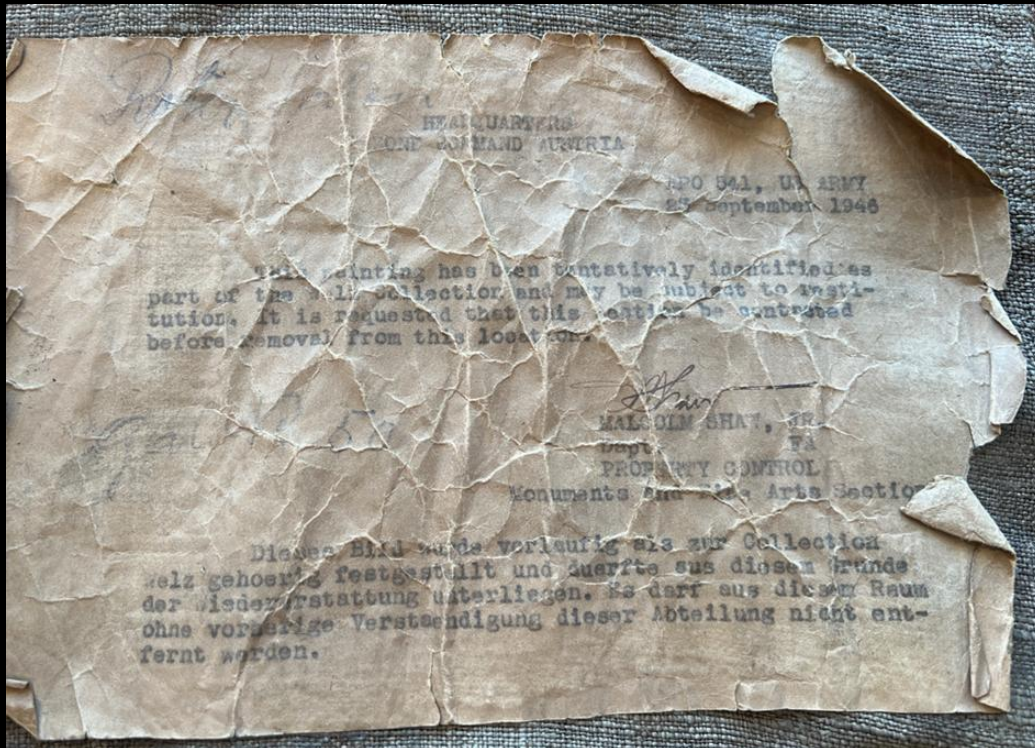 HEADQUARTERS
ZONE COMMAND AUSTRIA
APO 541, US ARMY
25 September 1946
This painting has been tentatively identified as
part of the Welz Collection and may be subject to resti-
tution. It is requested that this Section be contacted
before removal from this location.
MALCOLM SHAW, JR.
Capt. FA
PROPERTY CONTROL
Monuments and Fine Arts Section
Dieses Bild wurde vorlaufig als zur Collection
Welz gehoerig festgestellt und duerfte aus diesem Grunde
der Wiedererstattung unterliegen. Es darf aus diesem Raum
ohne vorherige Verstaendigung dieser Abteilung nicht ent-
fernt werden.